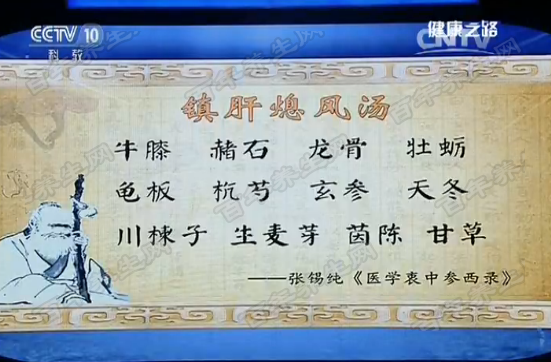 CCTV 10
科教
健康之路
CNTV
镇肝熄风汤
牛膝 赭石 龙骨 牡蛎
龟板 杭芍 玄参 天冬
川楝子 生麦芽 茵陈 甘草
——张锡纯《医学衷中参西录》
百年养生网